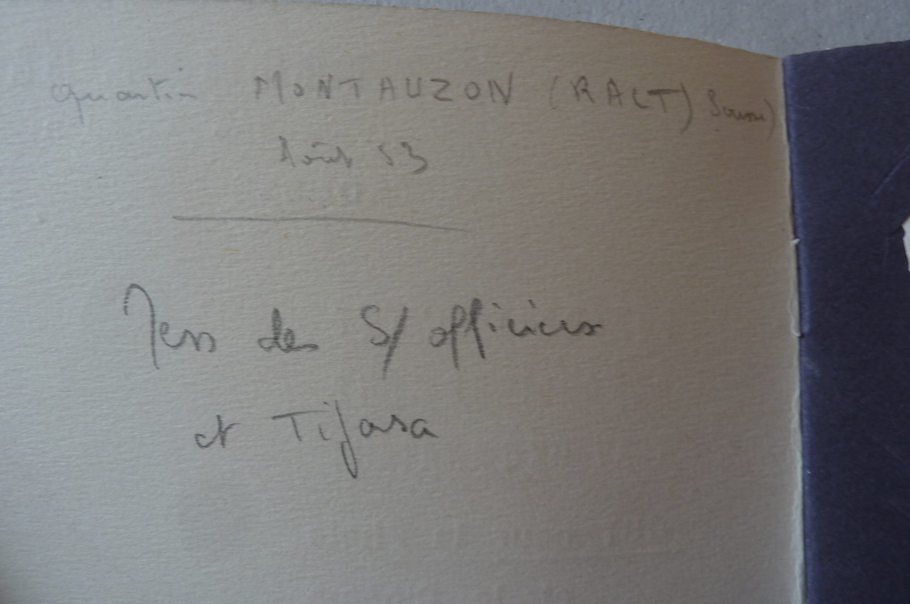 quartier MONTAUZON (RACT)
Août 53
Mess des S/officiers
et Tifasa